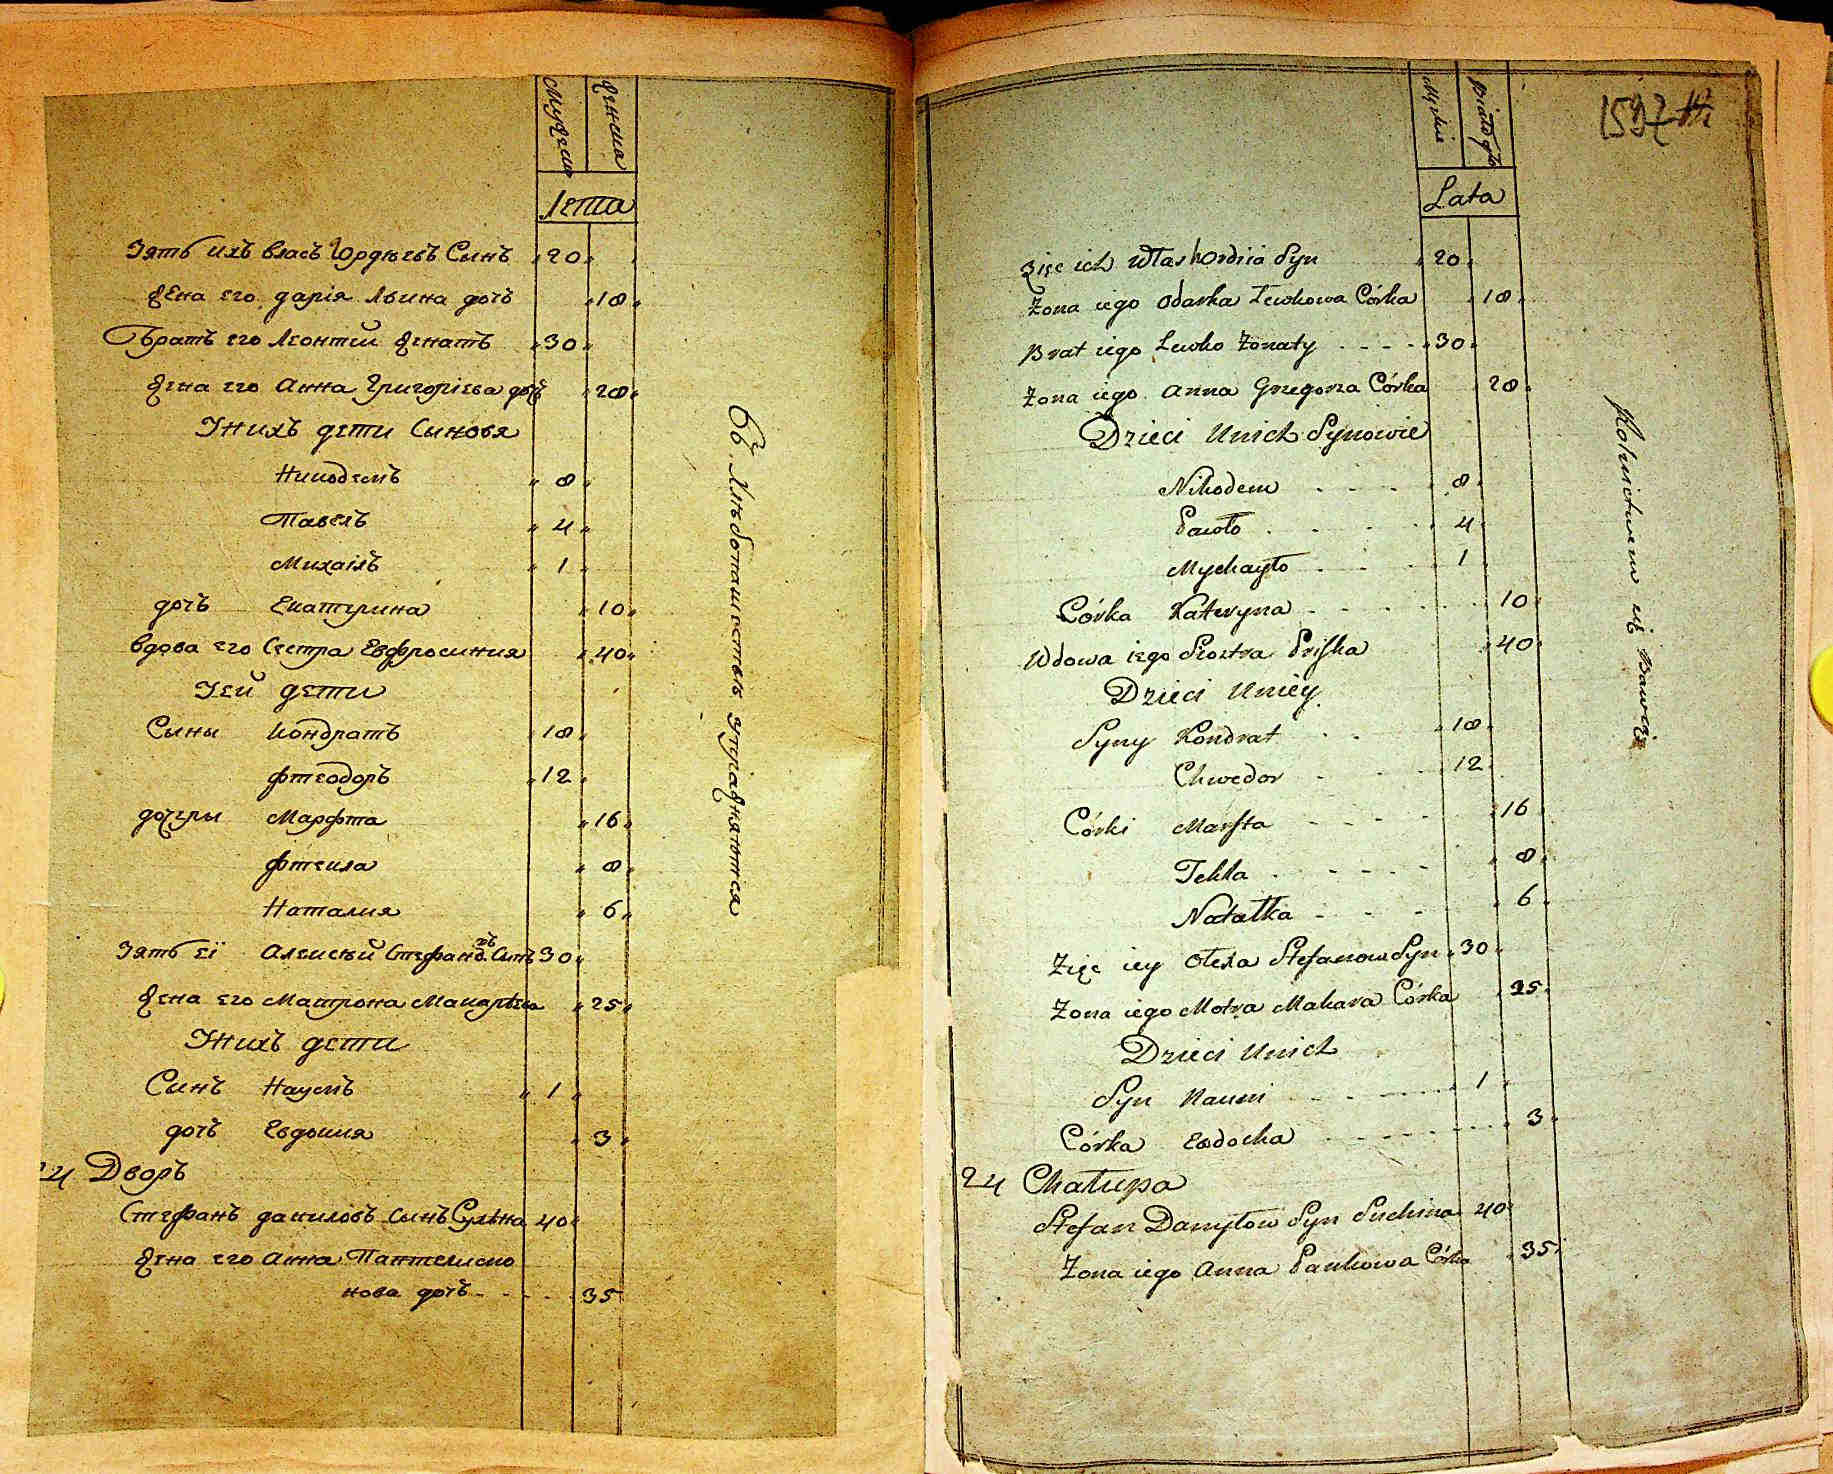 Мужеска
Женска
Лета
Зять ихъ Власъ Юрдѣевъ Сынъ 20
Жена его дарія Лвина дочь 18
Братъ его Леонтій женатъ 30
Жена его Анна Григоріева дочь 28
Унихъ дети Сыновя
Никодемъ 8
Павелъ 4
Михаілъ 1
дочь Екатерина 10
Вдова его Сестра Евфросиния 40
Уей дети
Сыны Кондратъ 18
Фтеодоръ 12
дочеры Марфта 16
Фтекла 8
Наталия 6
Зять еї Алексѣй Стефановъ Сынъ 30
Жена его Матрона Макарѣва 25
Унихъ дети
Сынъ Наумъ 1
дочь Евдокия 3
24 Дворъ
Стефанъ даниловъ сынъ Сухѣна 40
Жена его Анна Пантелимо
нова дочь - - - - 35
Хлѣбопашествомъ упражняются
1597
Męzkie
Białogło
Lata
Zięc ich Włas hordiia Syn 20
Zona iego Odarka Lewkowa Córka 18
Brat iego Lewko Zonaty - - - - 30
Zona iego Anna Grzegorza Córka 28
Dzieci Unich Synowie
Nikodem - - - - 8
Pawło - - - 4
Mychayło - - - 1
Córka Kateryna - - - - - 10
Wdowa iego Siostra Priska 40
Dzieci Uniey
Syny Kondrat - - 18
Chwedor - - - 12
Córki Marfta - - - - 16
Tekla - - - - - 8
Natałka - - - 6
Zięc iey Ołexa Stefanow Syn 30
Zona iego Motra Makara Córka 25
Dzieci Unich
Syn Naum - - - - 1
Córka Ewdocha - - - - - - 3
24 Chałupa
Stefan Danyłow Syn Suchina 40
Zona iego Anna Pankowa Córka 35
Rolnictwem się Bawią